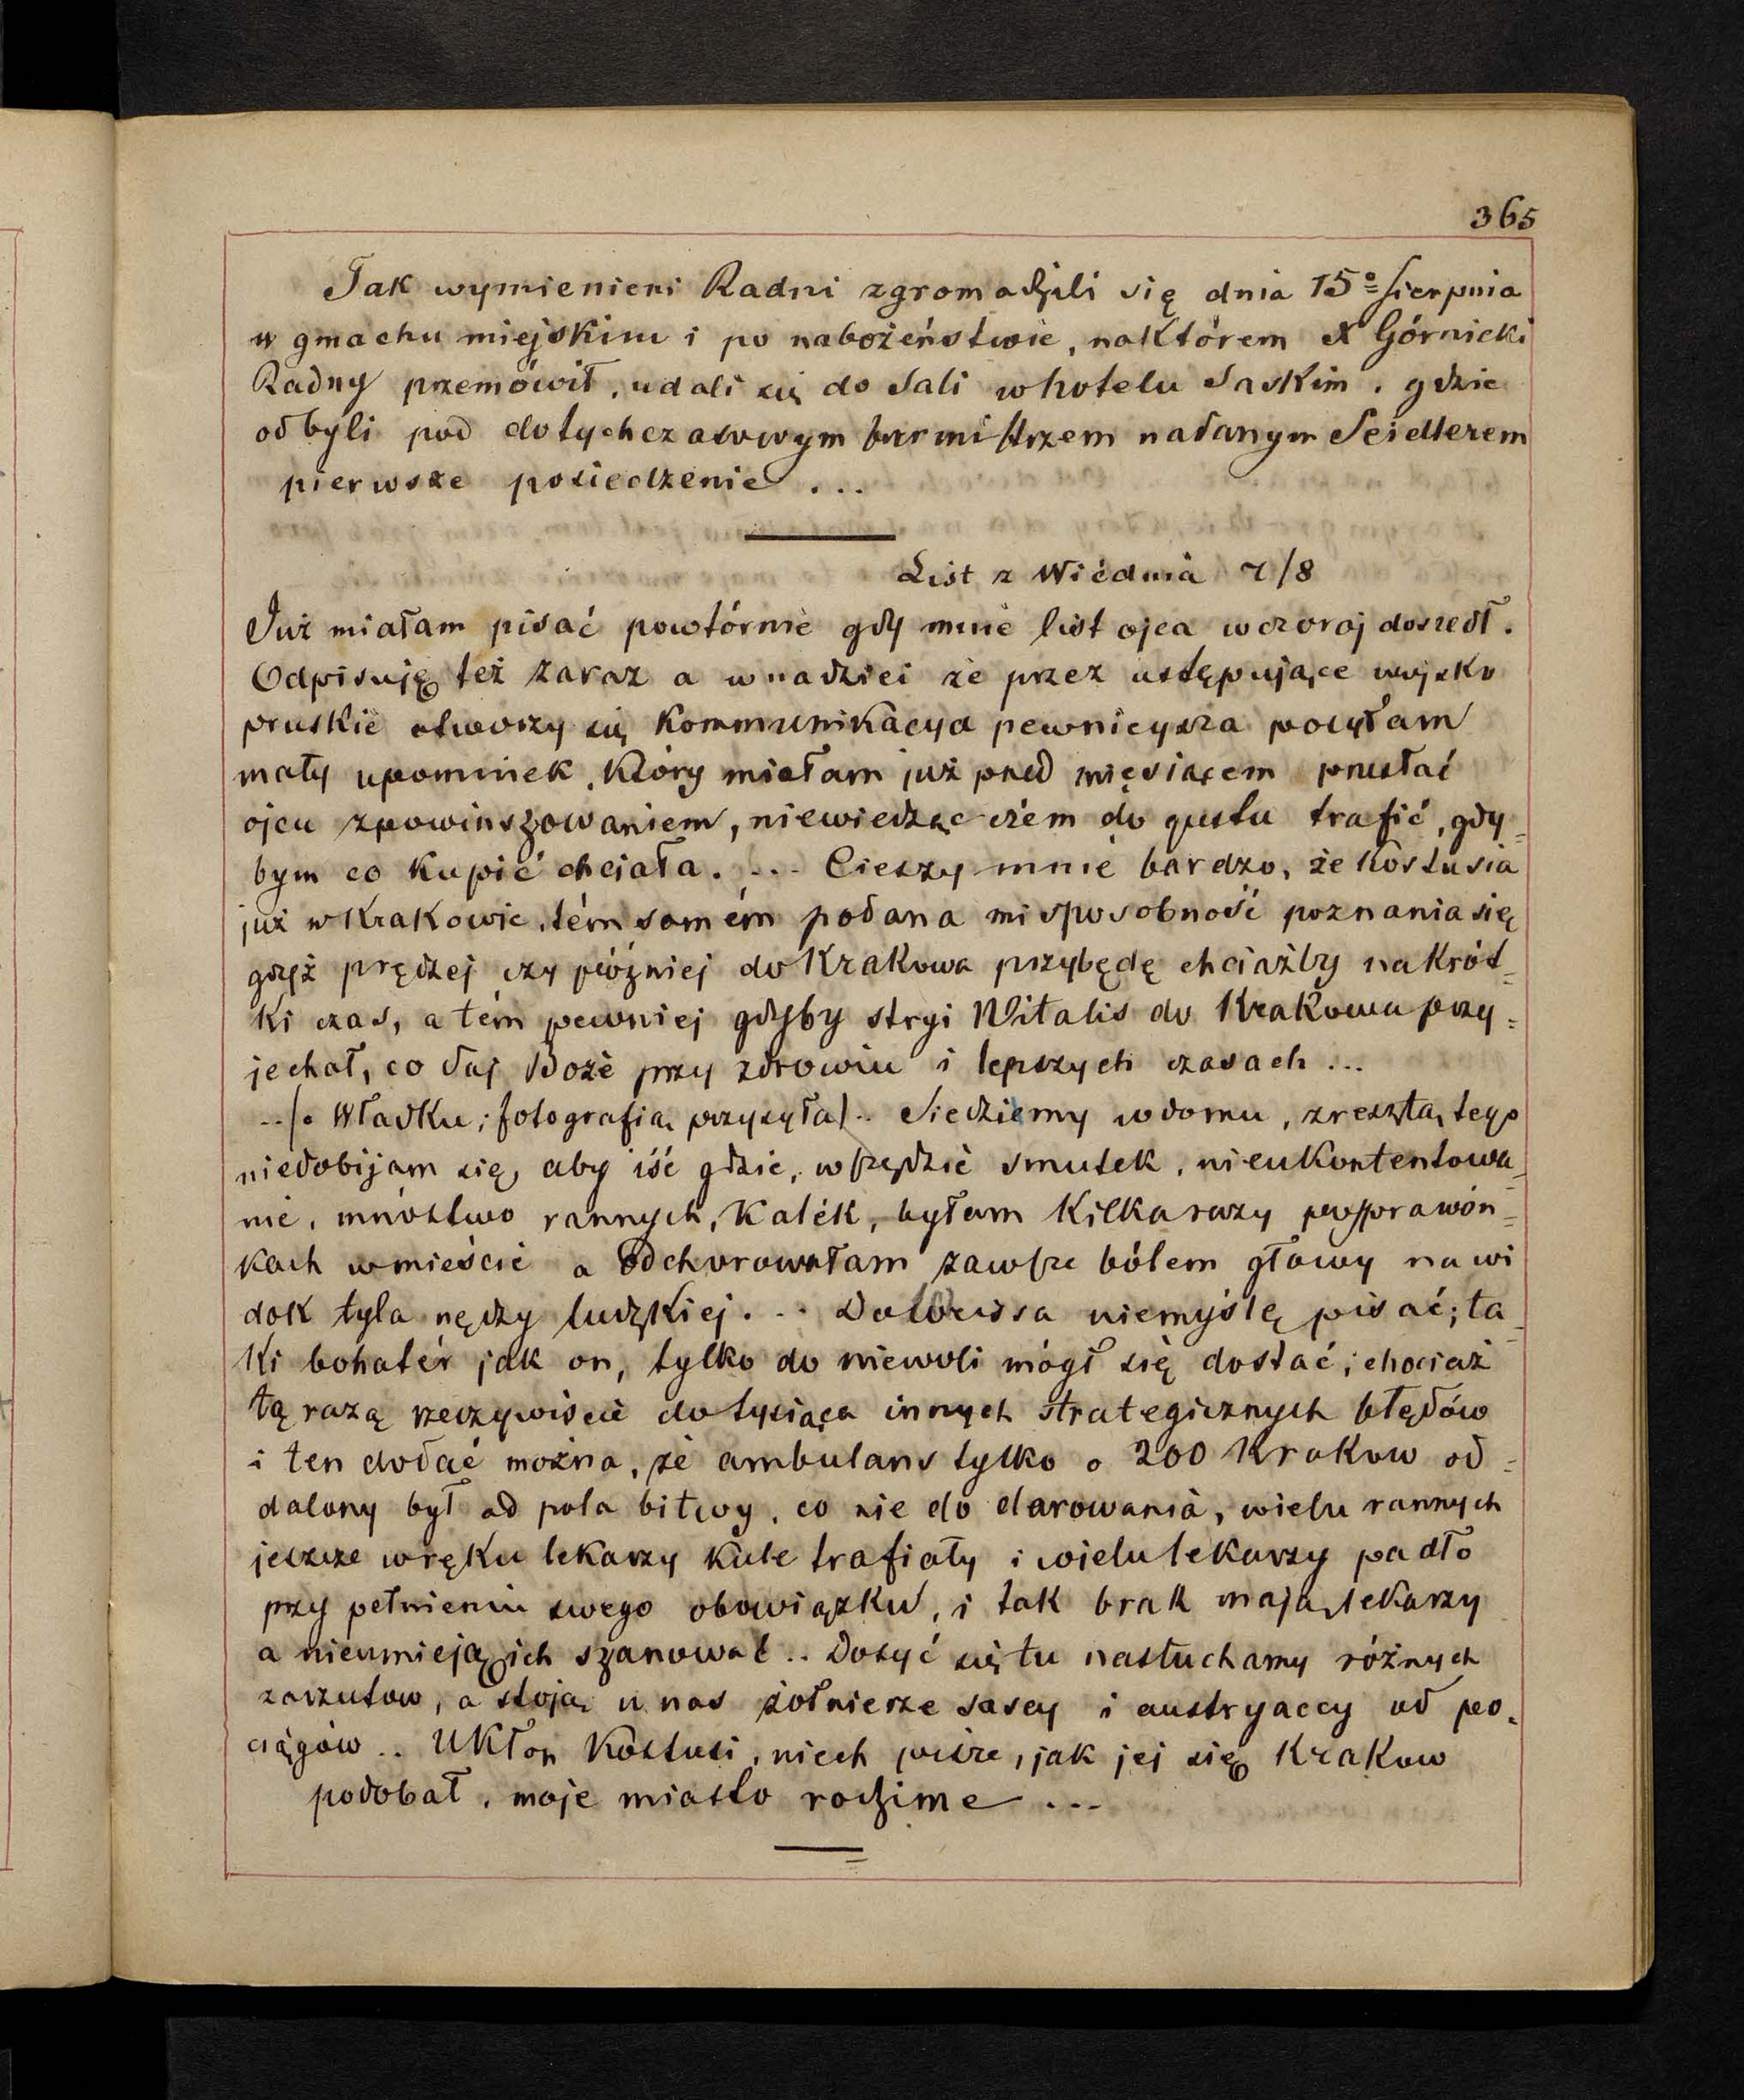 365
Tak wymienieni Radni zgromadzili się dnia 15º Sierpnia
w gmachu miejskim i po nabożeństwie, naktórem X Górnicki
Radny przemówił, udali się do Sali w hotelu Saskim, gdzie
odbyli pod dotychczasowym burmistrzem nadanym Seidlerem
pierwsze posiedzenie ...
List z Wiédnia 7/8
Już miałam pisać powtórnie gdy mnie list ojca wczoraj doszedł.
Odpisuję też zaraz a w nadziei że przez ustępujące wojsko
pruskie otworzy się kommunikacya pewniejsza posyłam
mały upominek, który miałam już przed miesiącem przesłać
ojcu zpowinszowaniem, niewiedząc czém do gustu trafić, gdy=
bym co kupić chciała. ... Cieszy mnie bardzo, że Kostusia
już w Krakowie, tém samém podana mi sposobność poznania się
gdyż prędzej czy później do Krakowa przybędę chciażby nakrót=
ki czas, a tém pewniej gdyby stryi Witalis do Krakowa przy=
jechał, co daj Boże przy zdrowiu i lepszych czasach ...
../o Władku; fotografią przysyła/.. Siedziemy wdomu, zresztą tego
niedobijam się, aby iść gdzie, wszędzie smutek, nieukontentowa=
nie, mnóstwo rannych, kalék, byłam kilkarazy posprawón=
kach wmieście a odchorowałam zawsze bólem głowy na wi
dok tyla nędzy ludzkiej. .. Do niemyślę pisać; ta=
ki bohatér jak on, tylko do niewoli mógł się dostać; chociaż
tą razą rzeczywiscie do tysiąca innych strategicznych błędów
i ten dodać można, że ambulans tylko o 200 Krokow od=
dalony był od pola bitwy, co nie do darowania, wielu rannych
jeszcze wręku lekarzy kule trafiały i wielu lekarzy padło
przy pełnieniu swego obowiązku, i tak brak mają lekarzy
a nieumieją ich szanować .. Dosyć się tu nasłuchamy różnych
zarzutow, a stoją u nas żołnierze sascy i austryaccy od po=
ciągów .. Ukłon Kostusi, niech pisze, jak jej się Krakow
podobał, moje miasto rodzime ...